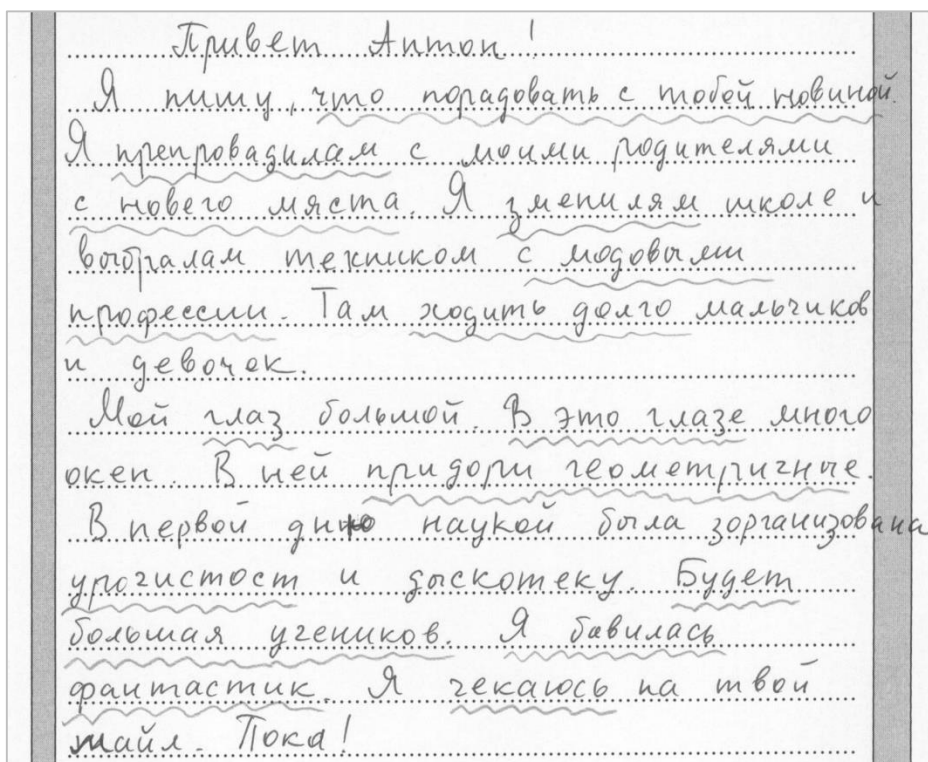 Привет Антон!
Я пишу, что порадовать с тобой новиной.
Я препровадилам с моими родителями
с нового мяста. Я зменилям школе и
выбралам техником с модовыми
профессии. Там ходить долго мальчиков
и девочек.
Мой глаз большой. В это глазе много
окен. В ней придори геометричные.
В первой дню наукой была зорганизована
урогистост и дыскотеку. Будет
большая учеников. Я бавилась
фантастик. Я чекаюсь на твой
майл. Пока!